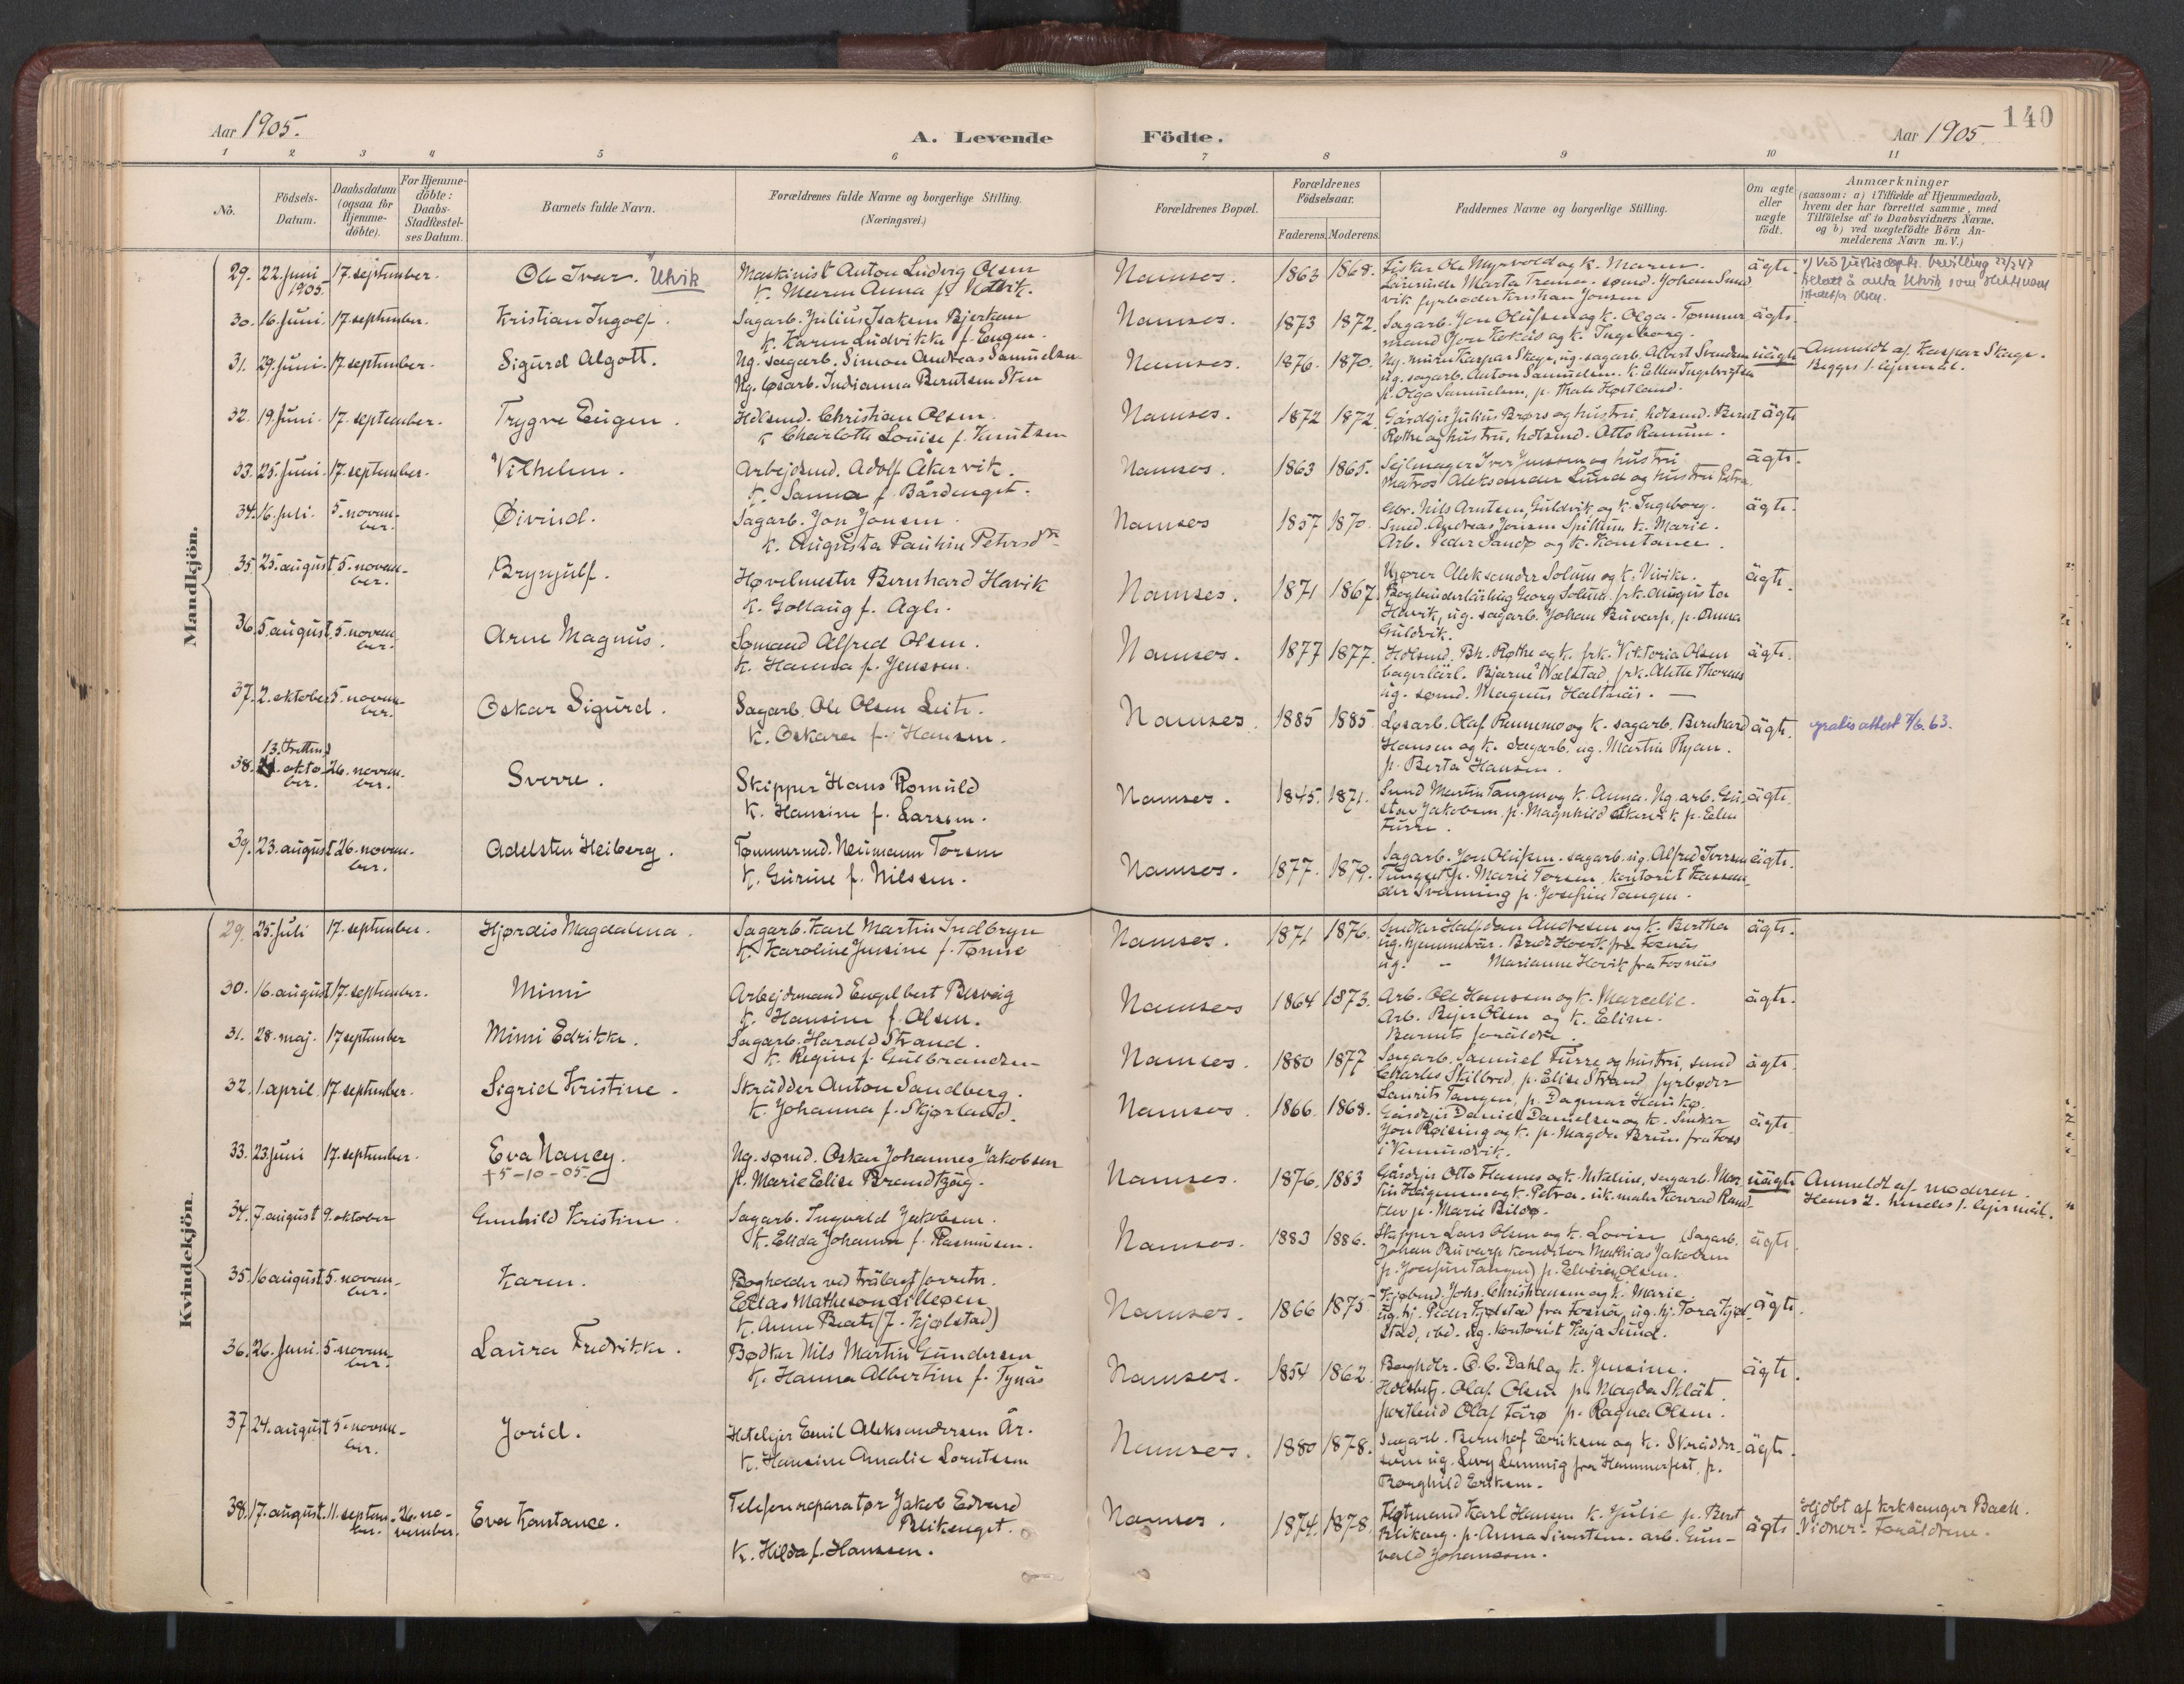 140
Aar 1905.
A. Levende Födte.
Aar 1905.
1 2 3 4 5 6 7 8 9 10 11
No.
Födsels-
Datum.
Daabsdatum
(ogsaa for
Hjemme-
döbte).
For Hjemme-
döbte:
Daabs-
Stadfæstel-
ses Datum.
Barnets fulde Navn.
Forældrenes fulde Navne og borgerlige Stilling.
(Næringsvei.)
Forældrenes Bopæl.
Forældrenes
Födselsaar.
Faderens. Moderens.
Faddernes Navne og borgerlige Stilling.
Om ægte
eller
uægte
födt.
Anmærkninger
(saasom: a) i Tilfælde af Hjemmedaab,
hvem der har forrettet samme, med
Tilföielse af to Daabsvidners Navne,
og b) ved uægtefödte Börn An-
melderens Navn m. V.)
Mandkjön.
29. 22. juni 1905. 17. september. Ole Ivar. Utvik
Maskinist Anton Ludvig Olsen
K. Maren Anna f. Utvik.
Namsos. 1863 1868.
Fisker Ole Myrvold og k. Maren.
ägte.
30. 16. juni. 17. september. Kristian Ingolf.
Sagarb. Julius Isaksen Bjerkan
K. Karen Ludvikka f. Engen.
Namsos. 1873 1872.
Sagarb. Jon Olufsen og k. Olga. Tømmer
mand Jon Kokås og k. Ingeborg.
ägte.
31. 29. juni. 17. september. Sigurd Algott.
Ug. sagarb. Simon Andreas Samuelsen
Ug. løsarb. Indianna Berntsen Sten
Namsos. 1876. 1870.
Ug. murer Kaspar Skage, ug. sagarb. Albert Svendsen
ug. sagarb. Anton Samuelsen. K. Ellen Ingebrigtsen
p. Olga Samuelsen, p. Thale Høstland.
uägte
Anmeldt af Kaspar Skage.
Begges 1. lejermål.
32. 19. juni. 17. september. Trygve Eugen.
Hdlsmd. Christian Olsen.
K. Charlotte Louise f. Knutsen
Namsos. 1872 1872.
Gårdejer Julius Brørs og hustru, hdlsmd. Bernt
Rothe og hustru, hdlsmd. Otto Ranum.
ägte
33. 25. juni. 17. september. Vilhelm.
Arbejdsmd. Adolf Åkervik.
K. Sanna f. Bårdenget.
Namsos. 1863 1865.
Sejlmager Iver Jenssen og hustru
Matros Aleksander Lund og hustru Petra.
ägte.
34. 16. juli. 5. novem-
ber. Øivind.
Sagarb. Jon Jonsen.
K. Augusta Pauline Petersdtr.
Namsos 1857 1870.
Gbr. Nils Arntsen, Guldvik, og k. Ingeborg.
Smed. Andreas Jensen Spillum k. Marie.
Arb. Peder Sandø og k. Konstance.
ägte.
35. 25. august 5. novem-
ber. Brynjulf.
Høvelmester Bernhard Havik
K. Gollaug f. Agle.
Namsos. 1871 1867.
Kjører Aleksander Solum og k. Vivike.
Bogbinderlärling Georg Solum. frk. Augusta
Havik, ug. sagarb. Johan Buvarp, p. Anna
Guldvik.
ägte.
36. 5. august. 5. novem-
ber. Arne Magnus.
Sømand Alfred Olsen.
K. Hanna f. Jenssen.
Namsos. 1877 1877.
Hdlsmd. Bh. Røthe og k. frk. Viktoria Olsen
bagerlärl. Bjarne Walstad, frk. Alette Thornes
ug. sømd. Magnus Haltnäs.
ägte.
37. 2. oktober 5. novem-
ber. Oskar Sigurd.
Sagarb. Ole Olsen Leite.
K. Oskara f. Hansen.
Namsos. 1885 1885
Løsarb. Olaf Rennemo og k. sagarb. Bernhard
Hansen og k. sagarb. ug. Martin Ryan.
p. Berta Hansen.
ägte.
gratis attest 7/6.63.
38. 13. trettende
okto-
ber. 26. novem-
ber. Sverre.
Skipper Hans Romuld
K. Hansine f. Larsen.
Namsos. 1845. 1871.
Smed Martin Tangen og k. Anna. Ug. arb. Gu-
stav Jakobsen, p. Magnhild Åkervik p. Elen
Furre.
ägte.
39. 23. august 26. novem-
ber. Adelsten Heiberg.
Tømmermd. Neumann Torsen
K. Gurine f. Nilssen.
Namsos. 1877. 1879.
Sagarb. Jon Olufsen. sagarb. ug. Alfred Iversen
p. Marie Torsen, kontorist Kassan-
der Svenning p. Josefine Tangen.
ägte.
Kvindekjön.
29. 25. juli 17. september. Hjørdis Magdalena.
Sagarb. Karl Martin Indbryn
K. Karoline Jensine f. Tønne
Namsos. 1871 1876.
Snedker Halfdan Andresen og k. Berthea
ug. hjemmevär. Berdt Hovik fra Fosnäs
ug. – Marianne Hovik fra Fosnäs
ägte.
30. 16. august 17. september. Mimi
Arbejdsmand Engelbert Bisvåg
K. Hansine f. Olsen.
Namsos 1864 1873.
Arb. Ole Hanssen og k. Marcelie.
Arb. Bejer Olsen og k. Eline.
Barnets forälder.
ägte.
31. 28. maj. 17 september Mimi Edrikke.
Sagarb. Harald Strand.
K. Regine f. Gulbrandsen
Namsos. 1880 1877
Sagarb. Samuel Furre og hustru, smed
Charles Skilbred, p. Elise Strand, fyrbøder
Laurits Tangen, p. Dagmar Hauskø.
ägte.
32. 1. april. 17. september. Sigrid Kristine.
Skrädder Anton Sandberg.
K. Johanna f. Skjørland.
Namsos. 1866. 1868.
Gårdejer Daniel Danielsen og k. Snedker
Jon Røising og k. p. Magda Bruun fra Foss
i Vemundvik.
ägte.
33. 23. juni 17. september. Eva Nancy.
+ 5-10-05.
Ug. sømd. Oskar Johannes Jakobsen
p. Marie Elise Brandtzäg.
Namsos. 1876. 1883
p. Marie Bildø.
uägte
Anmeldt af moderen.
Hans 2. hendes 1. lejermål.
34. 7. august 9. oktober Gunhild Kristine.
Sagarb. Ingvald Jakobsen.
K. Ellda Johanne f. Rasmussen.
Namsos. 1883 1886.
Skipper Lars Olsen og k. Lovise (Sagarb.
Johan Buvarp konditor Mathias Jakobsen
p. Josefine Tangen) p. Elverine Olsen.
ägte.
35. 16 august 5. novem-
ber. Karen.
Bogholder ved trälastforretn.
Edias Matheson Lilleøen
K. Anne Beate (f. Kjølstad)
Namsos. 1866 1875
Kjøbmd. Johs. Christiansen og k. Marie.
ug. hj. Peder Kjølstad fra Fosnäs, ug. hj. Tora Kjøl-
stad, ibd. ug. kontorist Kaja Lund.
ägte.
36. 26. juni. 5. novem-
ber. Laura Fredrikke.
Bødker Nils Martin Gundersen
K. Hanna Albertine f. Tynäs
Namsos. 1854 1862.
Boghdlr. O. C. Dahl og k. Jensine.
Olaf Olsen p. Magda Sklät.
Olaf Färø p. Ragna Olsen.
ägte.
37. 24. august 5. novem-
ber. Jorid.
Hotelejer Emil Aleksandersen År.
K. Hansine Amalie Lorntsen
Namsos. 1880 1878.
Sagarb. Bernhof Eriksen og k. Skrädder-
svend ug. Levy Lemmig fra Hammerfest, p.
Borghild Eriksen.
ägte.
38. 17. august. 11. septem-
ber. 26. no-
vember. Eva Konstance.
Telefonreparatør Jakob Edvard
Blikenget.
K. Hilda f. Hanssen.
Namsos. 1874. 1878.
Karl Hansen k. Julie p. Berit
Blikeng. p. Anna Sivertsen. arb. Gun-
vald Johanssen.
ägte.
Hjdbt af kirkesanger Bach.
Vidner: Forälderne.